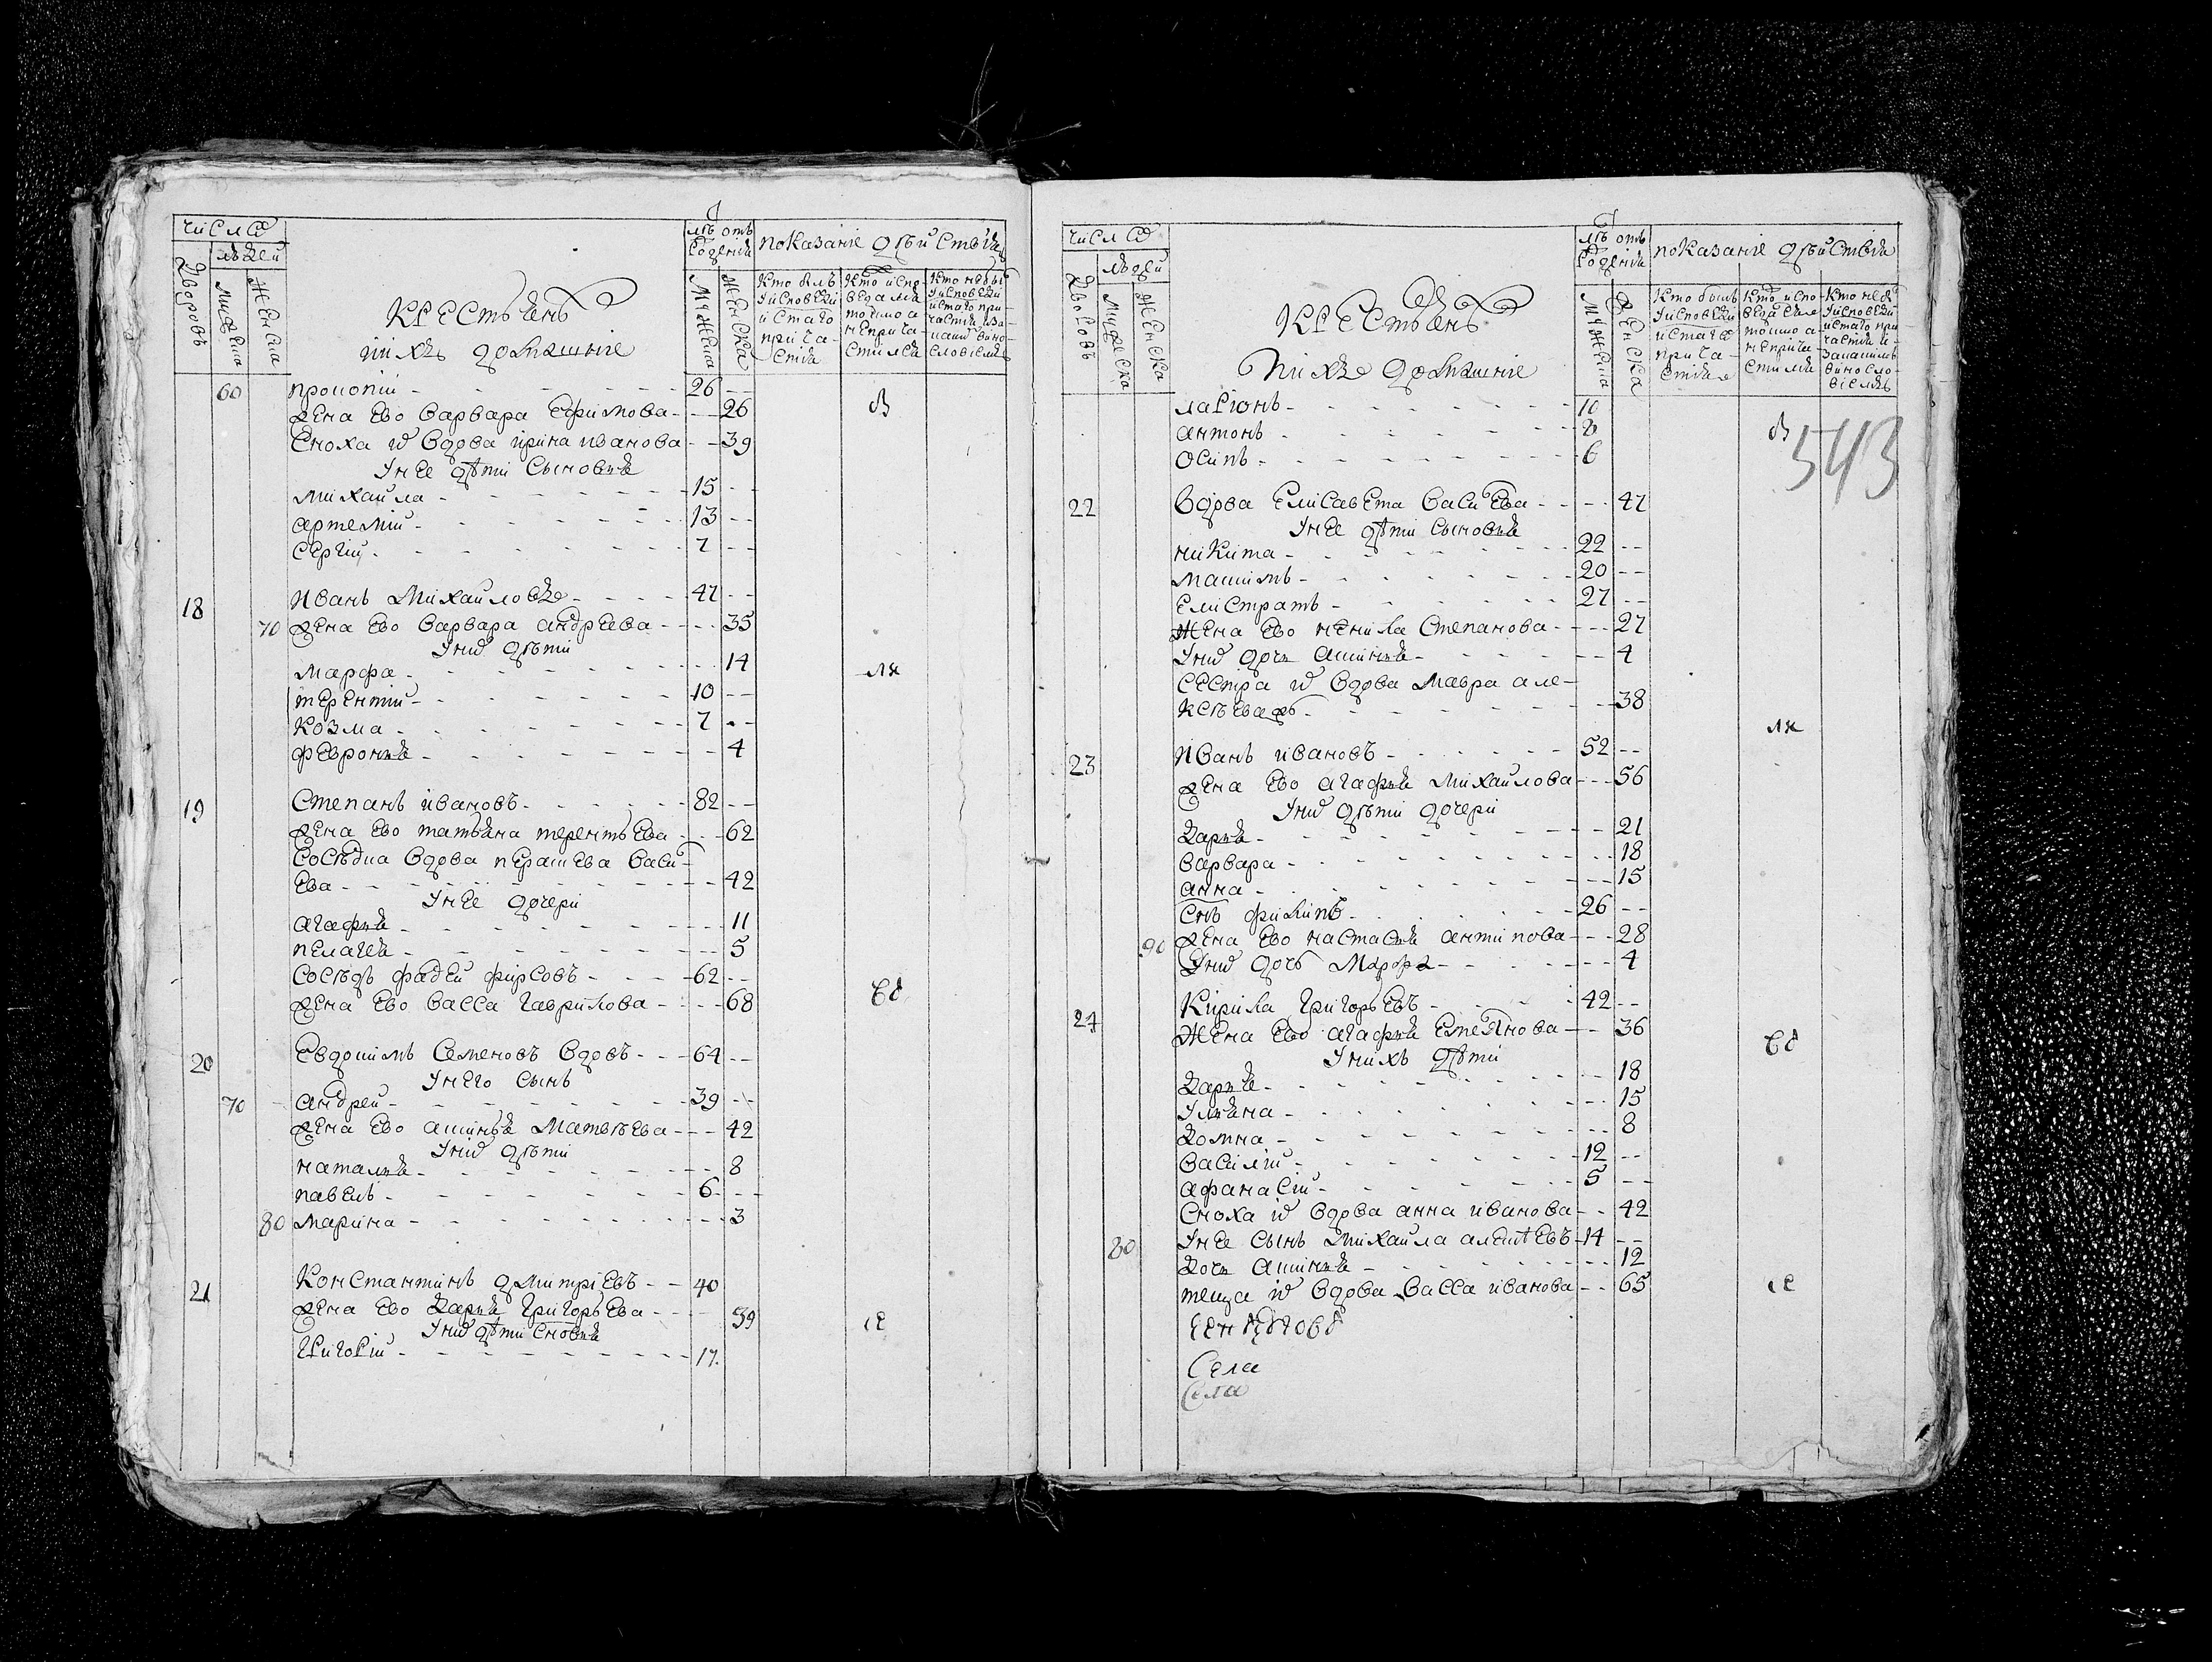 число
людей
дворовъ
мужеска
женска
крестьянъ
и ихъ домашние
лѣтъ отъ рождения
мужеска
женска
показание действия
кто былъ у исповеди и стаго причастия
кто исповедался токмо а не причастился
60 прокопии - 26
жена ево варвара ефимова - 26
Сноха и вдова ирина иванова - 39
У нее дѣти сыновья
михаила - 15
артемии - 13
сергии - 7
18 Иванъ Михаиловъ - 47
70 жена ево варвара андреева - 35
У них дѣти
марфа - 14
терентии - 10
козма - 7
феврония - 4
19 Степанъ ивановъ - 82
жена ево татьяна терентьева - 62
Сосѣдка вдова Васи-
ева - 42
У нее дочери
агафия - 11
пелагея - 5
сосѣдъ фадеи фирсовъ - 62
жена ево васса гаврилова - 68
20 Евдокимъ Семеновъ вдовъ - 64
У него сынъ
70 андреи - 39
жена ево акинья Матвѣева - 42
У них дѣти
наталия - 8
павелъ - 6
80 марина - 3
21 Константинъ дмитриевъ - 40
жена ево дария григорьева - 39
У них дѣти сновья
григории - 17
число
людей
дворовъ
мужеска
женска
крестьянъ
и ихъ домашние
лѣтъ отъ рождения
мужеска
женска
показание действия
кто былъ у исповеди и стаго причастия
кто исповедался токмо а не причастился
ларионъ - 10
антонъ - 8
осипъ - 6
543
22 вдова Елисавета васиева - 47
У нее дѣти сыновья
никита - 22
макимъ - 20
елистратъ - 27
жена ево ненила Степанова - 27
У них дочь акиния - 4
сестра и вдова мавра але-
ксѣева - 38
23 Иванъ ивановъ - 52
жена ево агафия михаилова - 56
У них дѣти дочери
дария - 21
варвара - 18
анна - 15
снъ филипъ - 26
90 жена ево настасия антипова - 28
У них дочь Марфа - 4
24 Кирила григорьевъ - 42
жена ево агафия емелянова - 36
У нихъ дѣти
дария - 18
улияна - 15
домна - 8
василии - 12
афанасии - 5
сноха и вдова анна иванова - 42
80 У нее сынъ михаила алеѯѣевъ - 14
дочь акиния - 12
теща и вдова васса иванова - 65
Села
Села